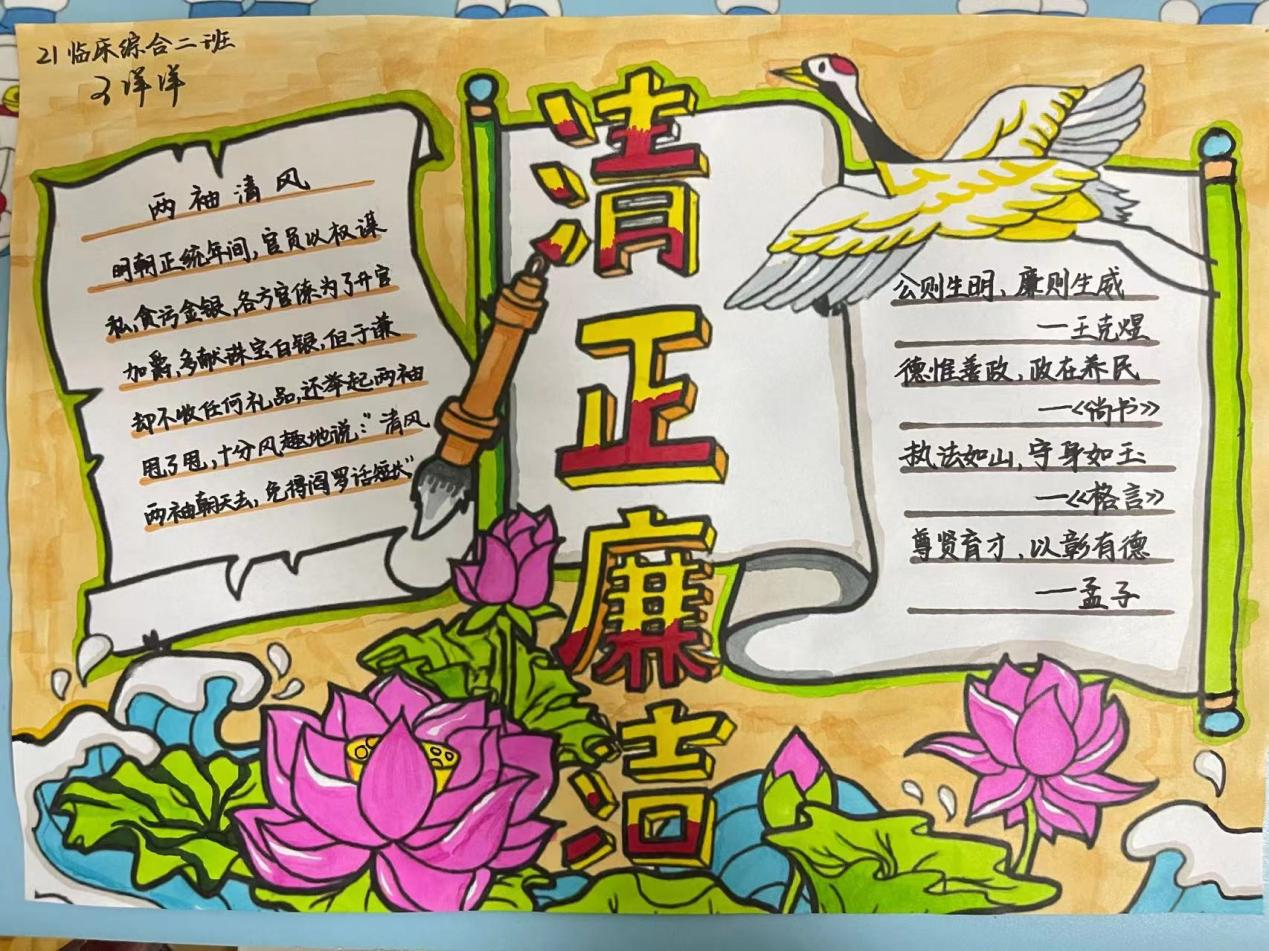 21临床综合二班
刁洋洋
清正廉洁
两袖清风
明朝正统年间,官员以权谋
私,贪污金银,各方官僚为了升官
加爵,多献珠宝白银,但于谦
却不收任何礼品,还举起两袖
甩了甩,十分风趣地说:"清风
两袖朝天去,免得阎罗话短长"
公则生明、廉则生威
—王克煜
德惟善政,政在养民
—《尚书》
执法如山,守身如玉
—《格言》
尊贤育才,以彰有德
—孟子